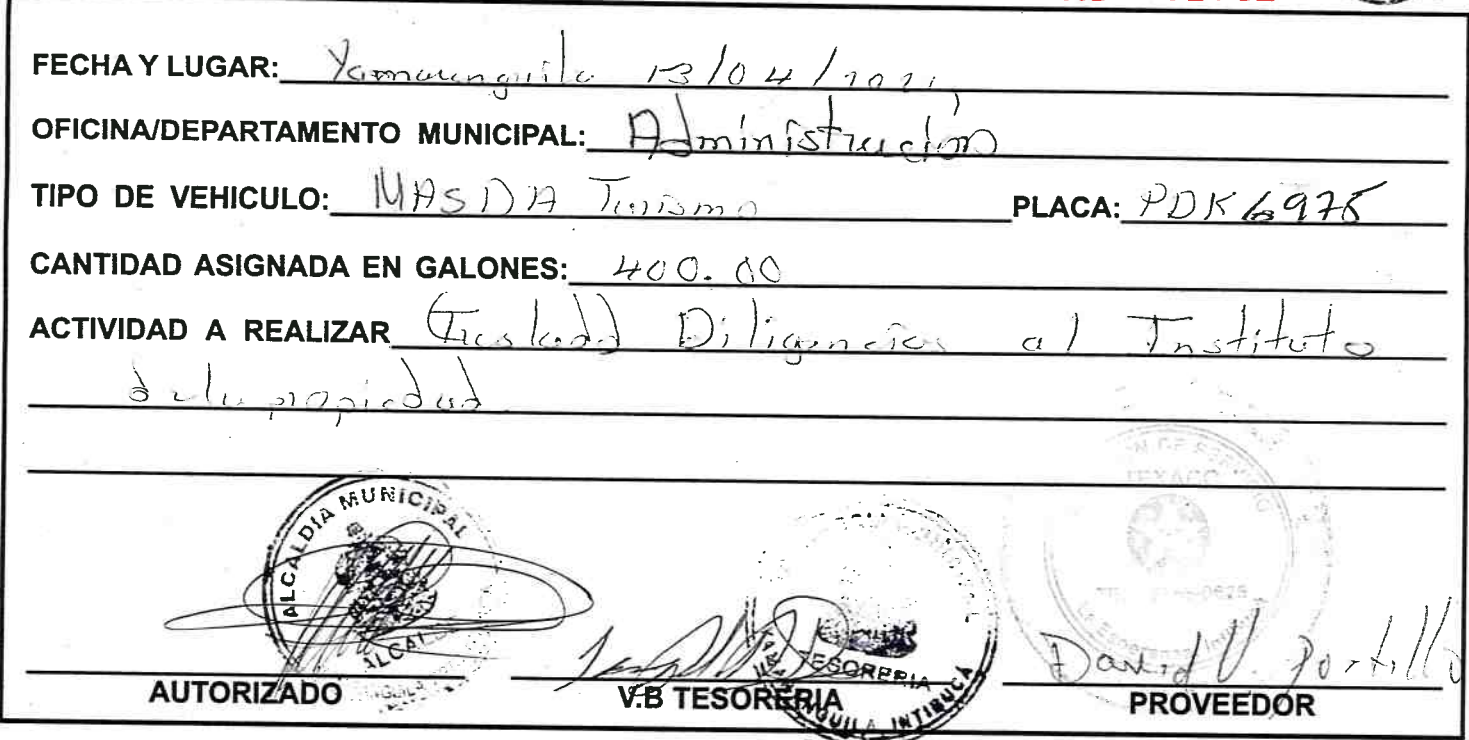 FECHA Y LUGAR: Yamaranguila 13/04/2021
OFICINA/DEPARTAMENTO MUNICIPAL: Administración
TIPO DE VEHICULO: MASDA Turismo PLACA: PDK 6975
CANTIDAD ASIGNADA EN GALONES: 400.00
ACTIVIDAD A REALIZAR (Traslado) Diligencias al Instituto
de la propiedad
ALCALDIA MUNICIPAL
ALCAL
TESORERIA
INTIBUCA
TEXACO
David V. Portillo
AUTORIZADO V.B TESORERIA PROVEEDOR